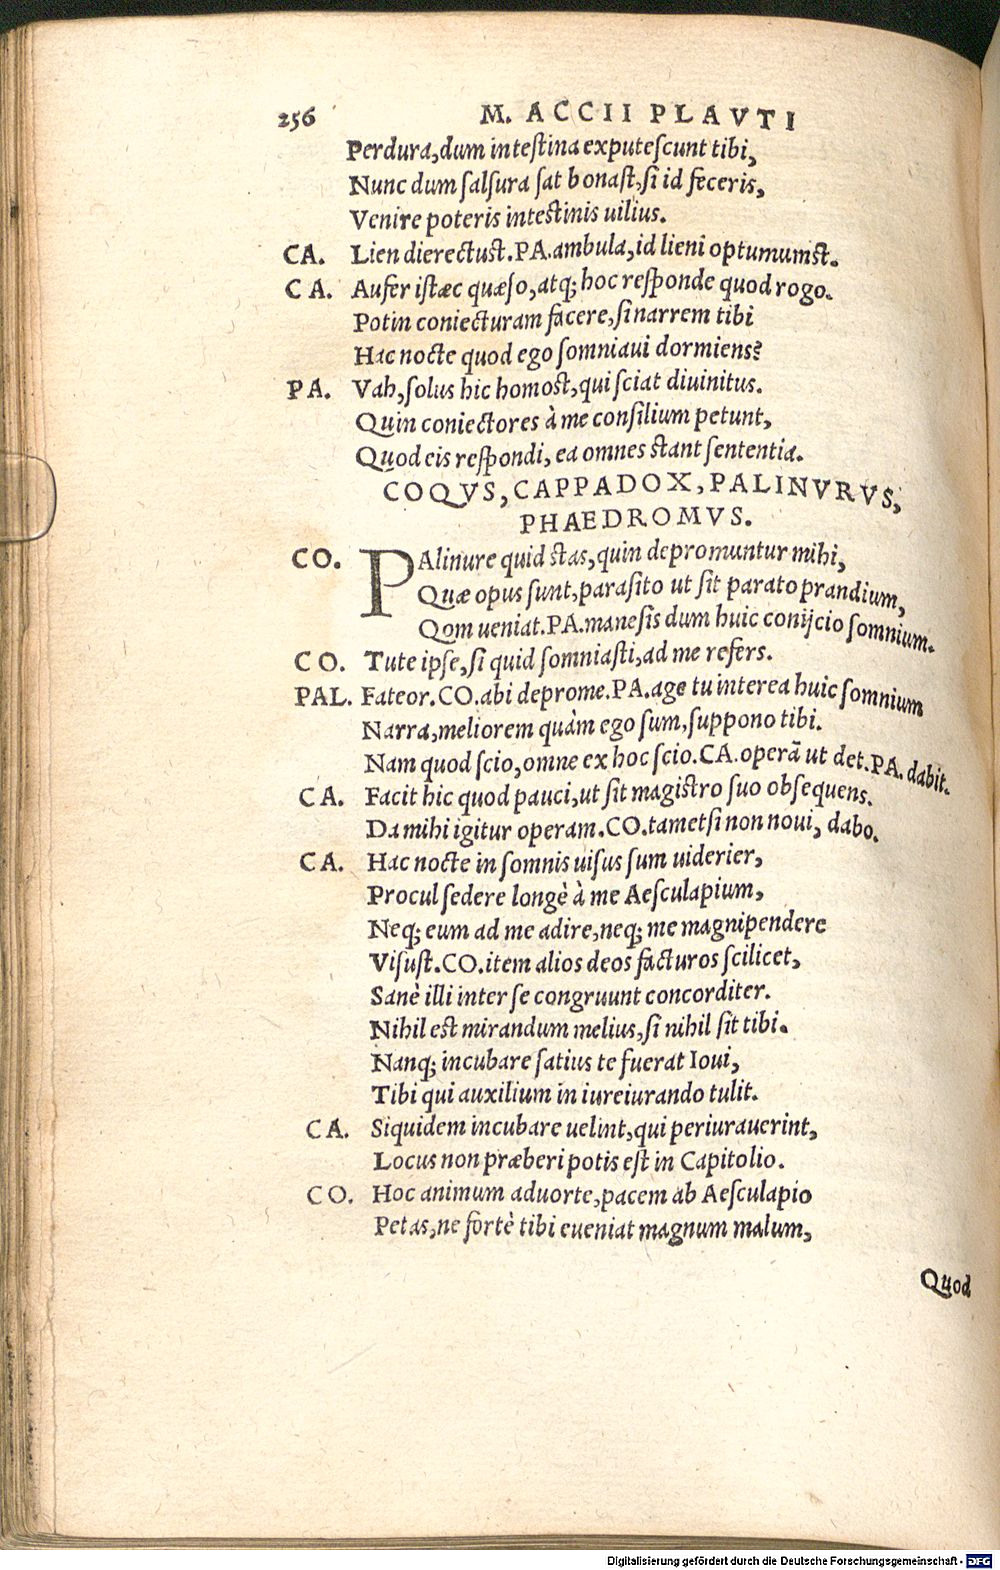 256 M. ACCII PLAVTI
Perdura, dum inteſtina exputeſcunt tibi,
Nunc dum ſalſura ſat bonaſt, ſi id feceris,
Venire poteris inteſtinis uilius.
CA. Lien dierectuſt. PA. ambula, id lieni optumumſt.
CA. Aufer iſtæc quæſo, atq; hoc reſponde quod rogo.
Potin coniecturam facere, ſi narrem tibi
Hac nocte quod ego ſomniaui dormiens?
PA. Vah, ſolus hic homoſt, qui ſciat diuinitus.
Quin coniectores à me conſilium petunt,
Quod eis reſpondi, ea omnes ſtant ſententia.
COQVS, CAPPADOX, PALINVRVS,
PHAEDROMVS.
CO. PAlinure quid ſtas, quin depromuntur mihi,
Quæ opus ſunt, paraſito ut ſit parato prandium,
Qom ueniat. PA. maneſis dum huic conijcio ſomnium.
CO. Tute ipſe, ſi quid ſomniaſti, ad me refers.
PAL. Fateor. CO. abi deprome. PA. age tu interea huic ſomnium
Narra, meliorem quàm ego ſum, ſuppono tibi.
Nam quod ſcio, omne ex hoc ſcio. CA. operã ut det. PA. dabit.
CA. Facit hic quod pauci, ut ſit magiſtro ſuo obſequens.
Da mihi igitur operam. CO. tametſi non noui, dabo.
CA. Hac nocte in ſomnis uiſus ſum uiderier,
Procul ſedere longè à me Aeſculapium,
Neq; eum ad me adire, neq; me magnipendere
Viſuſt. CO. item alios deos facturos ſcilicet,
Sanè illi inter ſe congruunt concorditer.
Nihil eſt mirandum melius, ſi nihil ſit tibi.
Nanq; incubare ſatius te fuerat Ioui,
Tibi qui auxilium in iureiurando tulit.
CA. Siquidem incubare uelint, qui periurauerint,
Locus non præberi potis eſt in Capitolio.
CO. Hoc animum aduorte, pacem ab Aeſculapio
Petas, ne fortè tibi eueniat magnum malum,
Quod
Digitalisierung gefördert durch die Deutsche Forschungsgemeinschaft - DFG